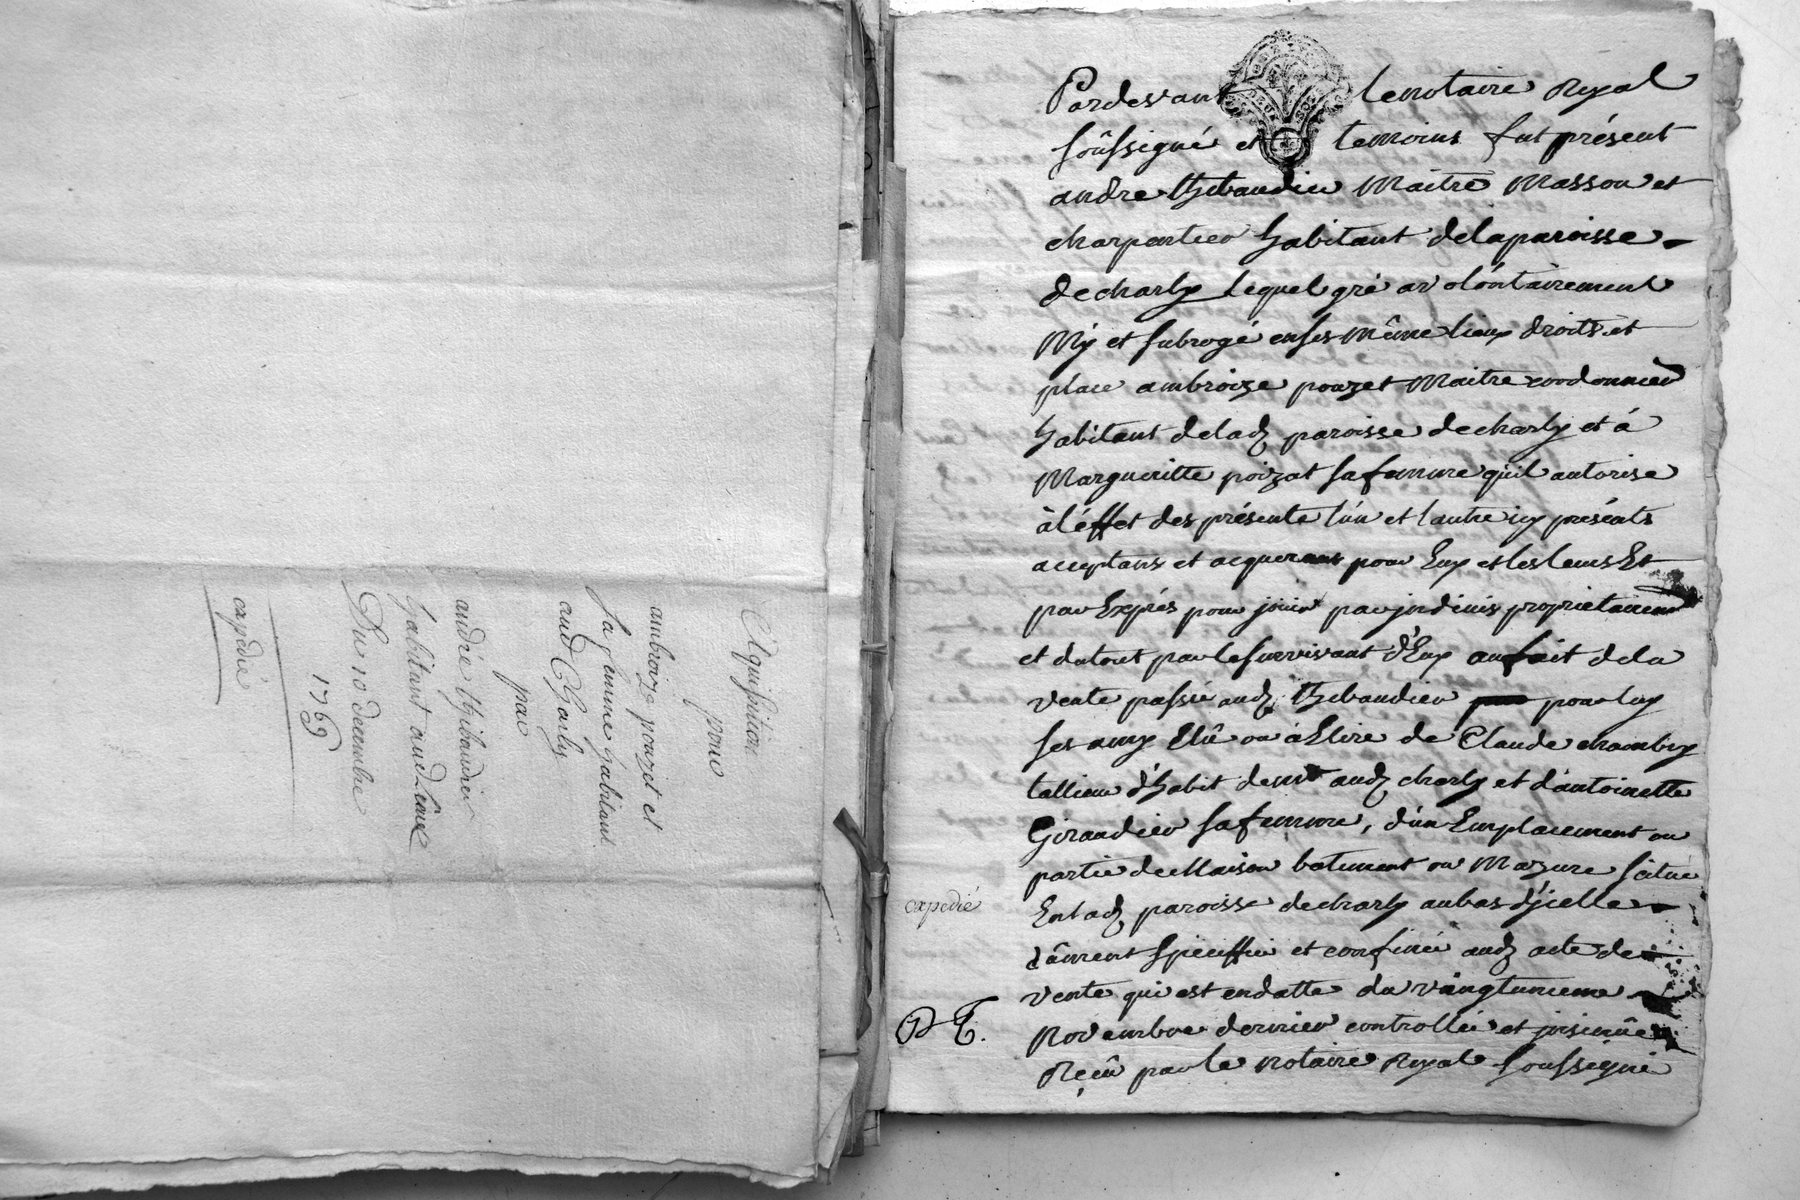 Aquisition
pour
ambroize pouzet et
sa femme habitant
aud Charly
par
andré thibaudier
habitant aud Lieu
Du 10 decembre
1769
expedié
Pardevant le notaire Royal
soûssigné et temoins fut présent
andre thibaudier Maitre Masson et
charpentier habitant delaparoisse
decharly lequel gré a volontairement
Mis et subrogé enses même lieux droits et
place ambroize pouzet Maitre cordonnier
habitant delad paroisse decharly et á
Margueritte poizat safemme qu'il autorise
à l'éffet des présente l'ún et l'autre icy présents
acceptans et acquerans pour Eux et les leurs Et
par Exprés pour jouir par jndivis proprietairem
et dutout par lesurvivant d'Eux aufait dela
vente passée aud thibaudier pour luy
ses amy Elû ou à Elire de Claude chambry
tallieur d'habit demt aud charly et d'antoinette
Giraudier safemme, d'ún Emplacement ou
partie deMaison batiment ou Mazure scitué
Enlad paroisse decharly aubas d'jcelle
dûment speciffié et confiné aud acte de
vente qui est endatte du vingtunieme
Novembre dernier controllée et jnsinûé
Reçû par le notaire Royal soussigné
expedié
P T.